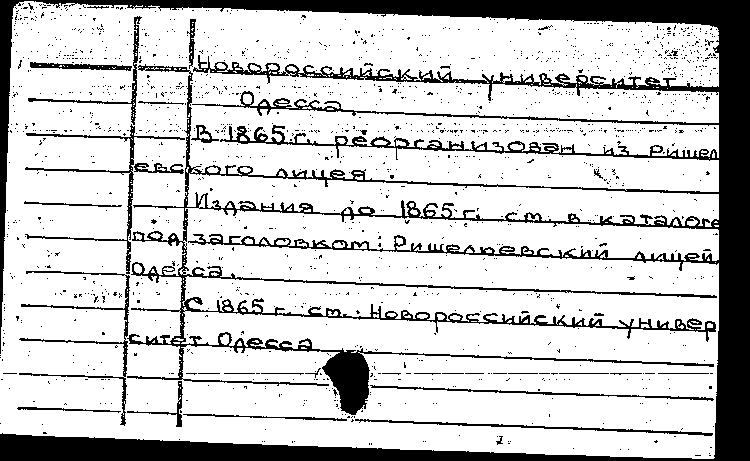 Новороссийский университет.
Одесса.
В 1865 г. реорганизован из Ришел
евского лицея.
Издания до 1865 г. см. в каталоге
под заголовком: Ришельевский лицей.
Одесса.
С 1865 г. см.: Новороссийский универ
ситет Одесса